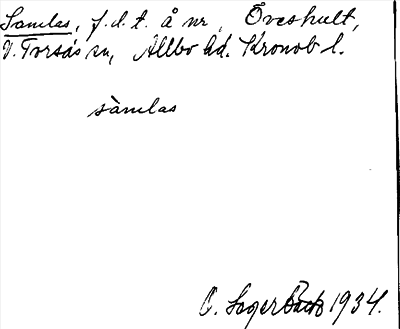 Samlas, f.d.t. å nr, Öveshult,
V. Torsås sn, Allbo hd. Kronob l.
sàmlas
O. Lagerbäck 1934.